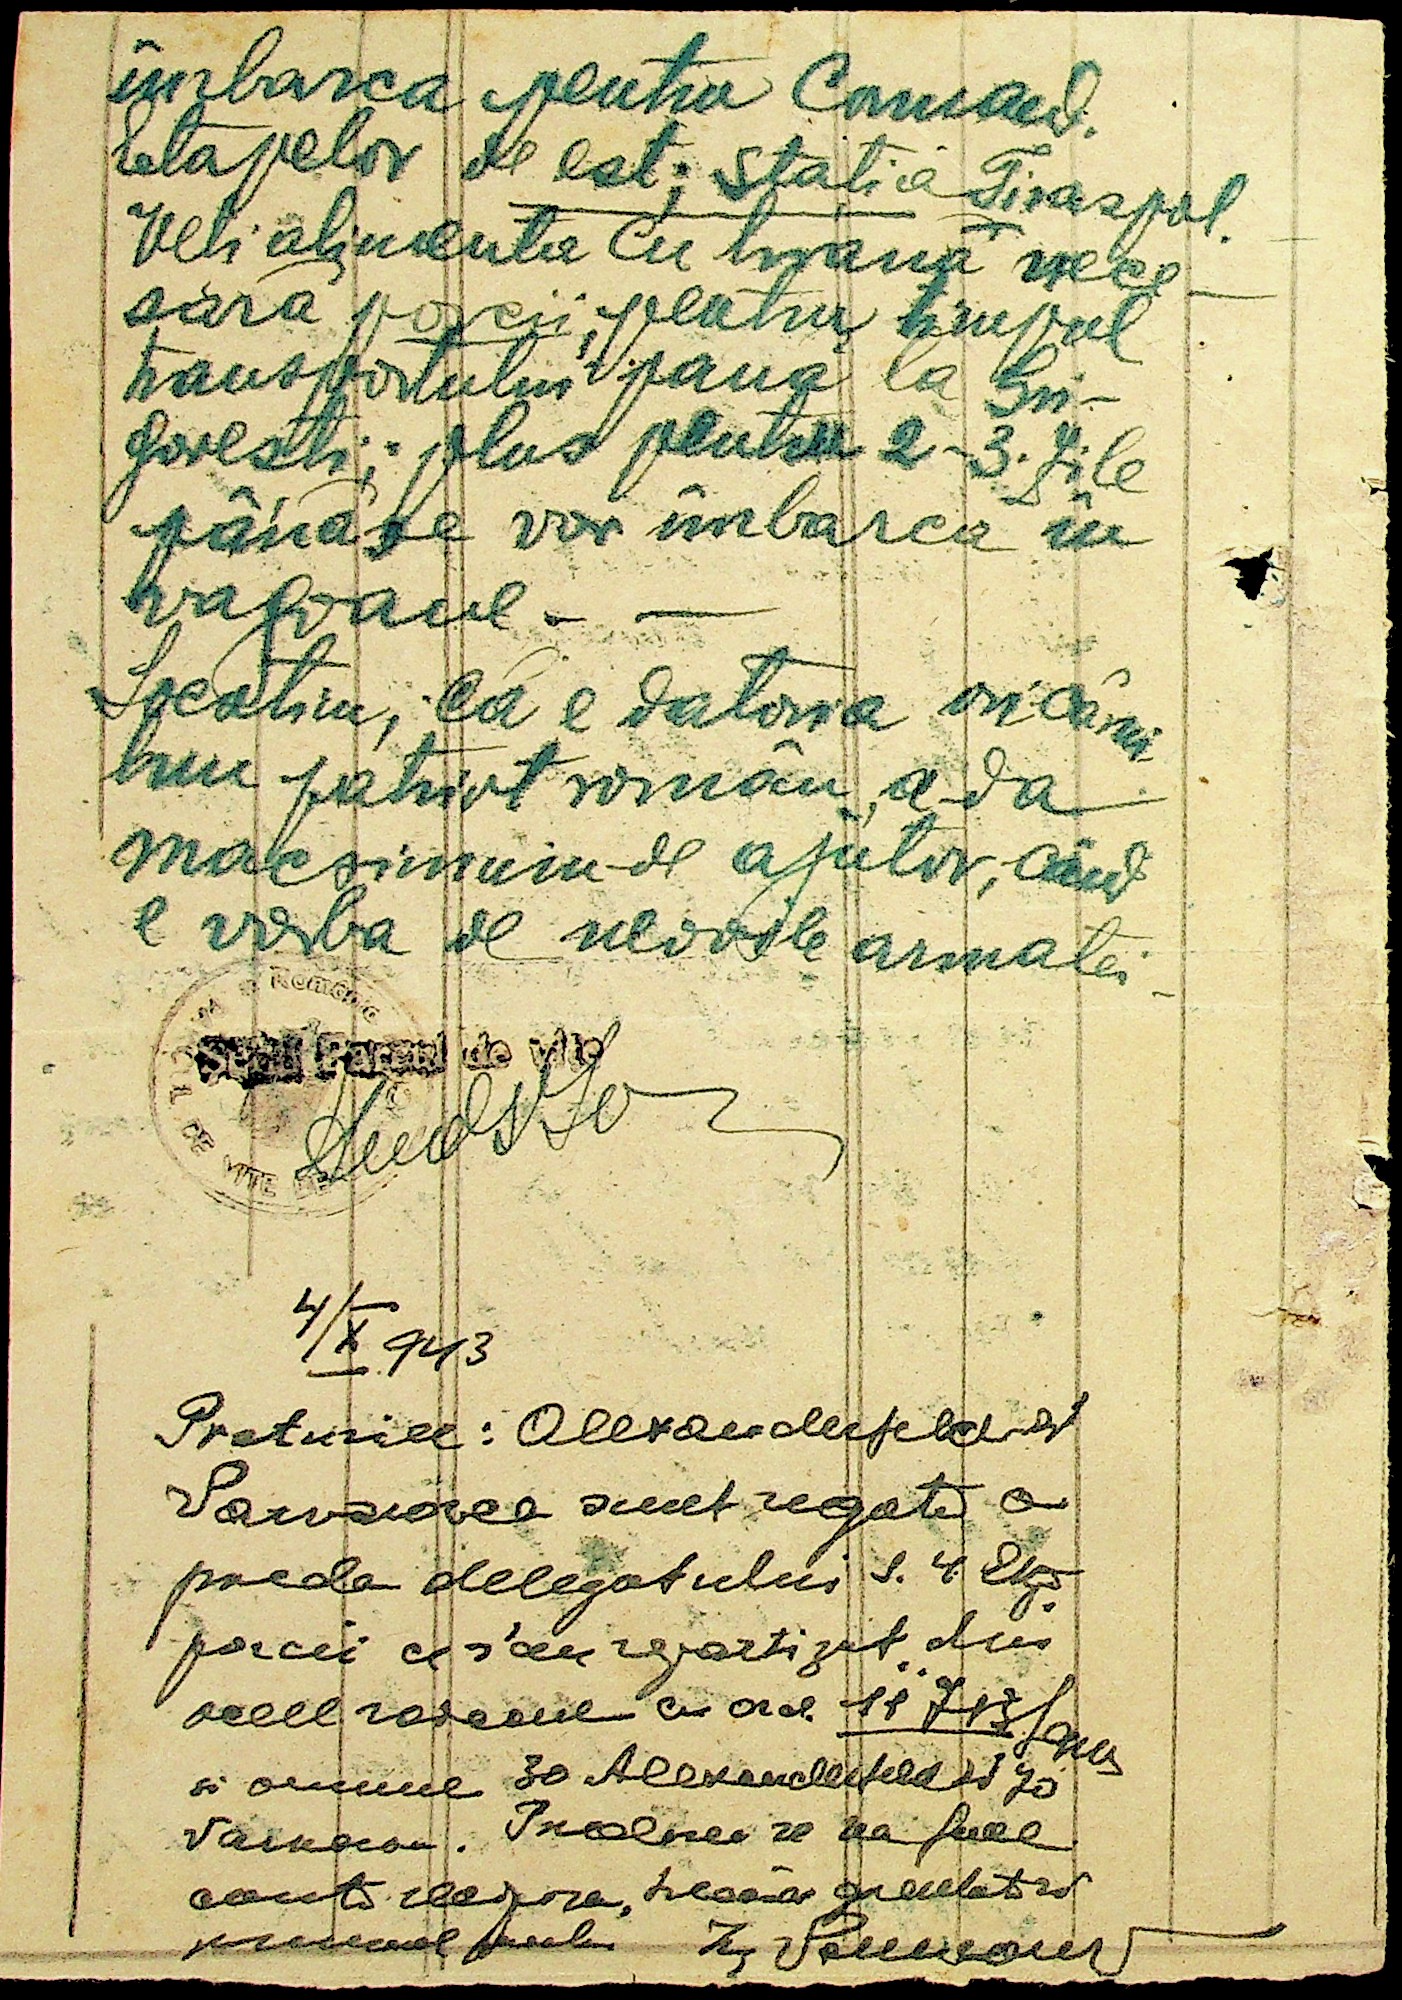 îmbarca pentru Comand.
Etapelor de est; stația Tiraspol.
Veți alimenta cu hrană nece-
sară porcii, pentru timpul
transportului până la Gri-
gorești; plus pentru 2-3. zile
până se vor îmbarca în
vagoane. —
Socotim, că e datoria oricărui
bun patriot român, a da
macsimum de ajutor, când
e vorba de nevoile armatei.
România
DE VITE
Șeful Parcul de vite
4/X 943
Preturile: Alexanderfeld și
sunt rugate a
preda delegatului
porcii ce s'au repartizat din
cu ord. 11713
și anume 30 Alexanderfeld și 70
Predarea se va face